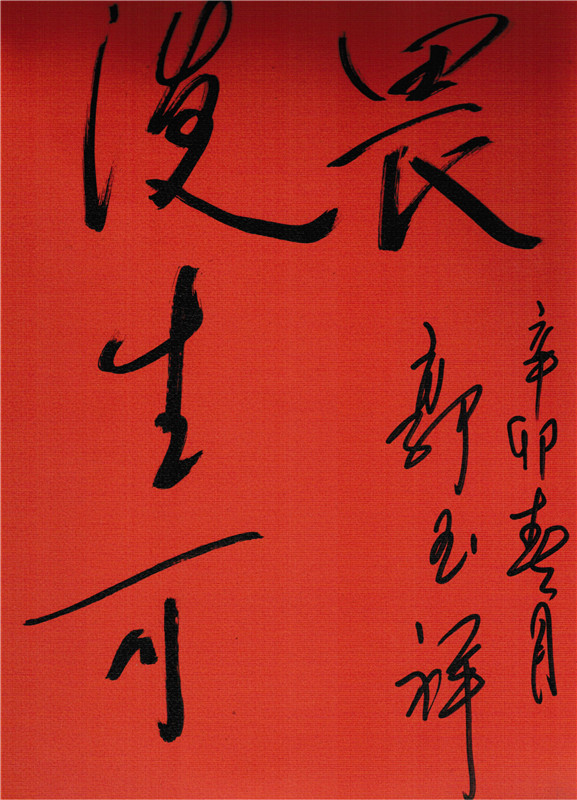 後生可
畏
辛卯春月
郭玉祥